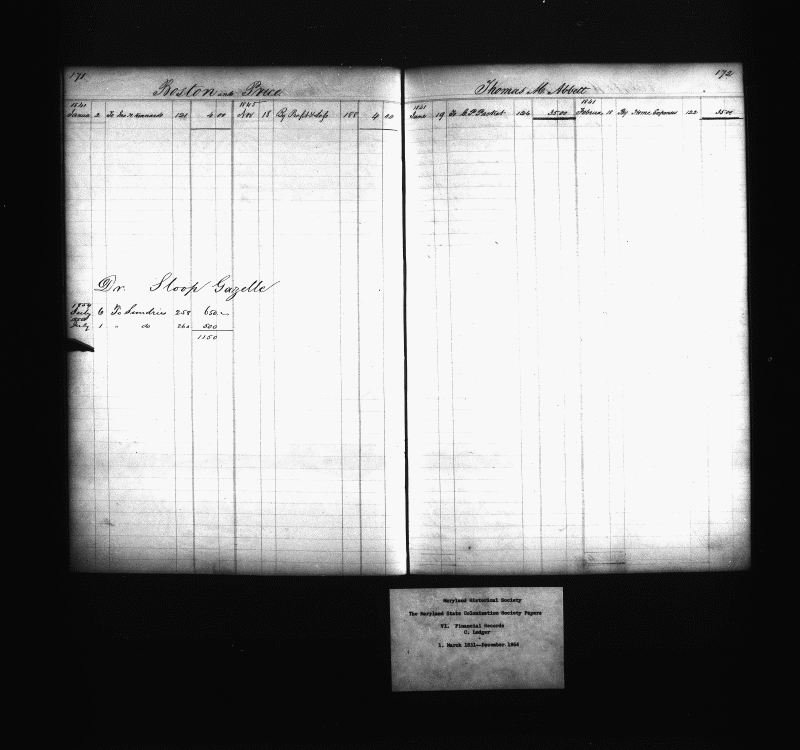 171
Boston and Price
1841 1845
Janua 2 To Jno H Kennards 121 4 00 Nov 18 By Profit & Loss 188 4 00
Dr. Sloop Gazelle
1854
July 6 To Sundries 258 650
July 1 " do 260 500
1150
172
Thomas M. Abbett
1841 1841
June 19 To C. P. Packet 126 35.00 Februa 18 By Home Expenses 122 35.00
Maryland Historical Society
The Maryland State Colonization Society Papers
VI. Financial Records
C. Ledger
1. March 1831--December 1864